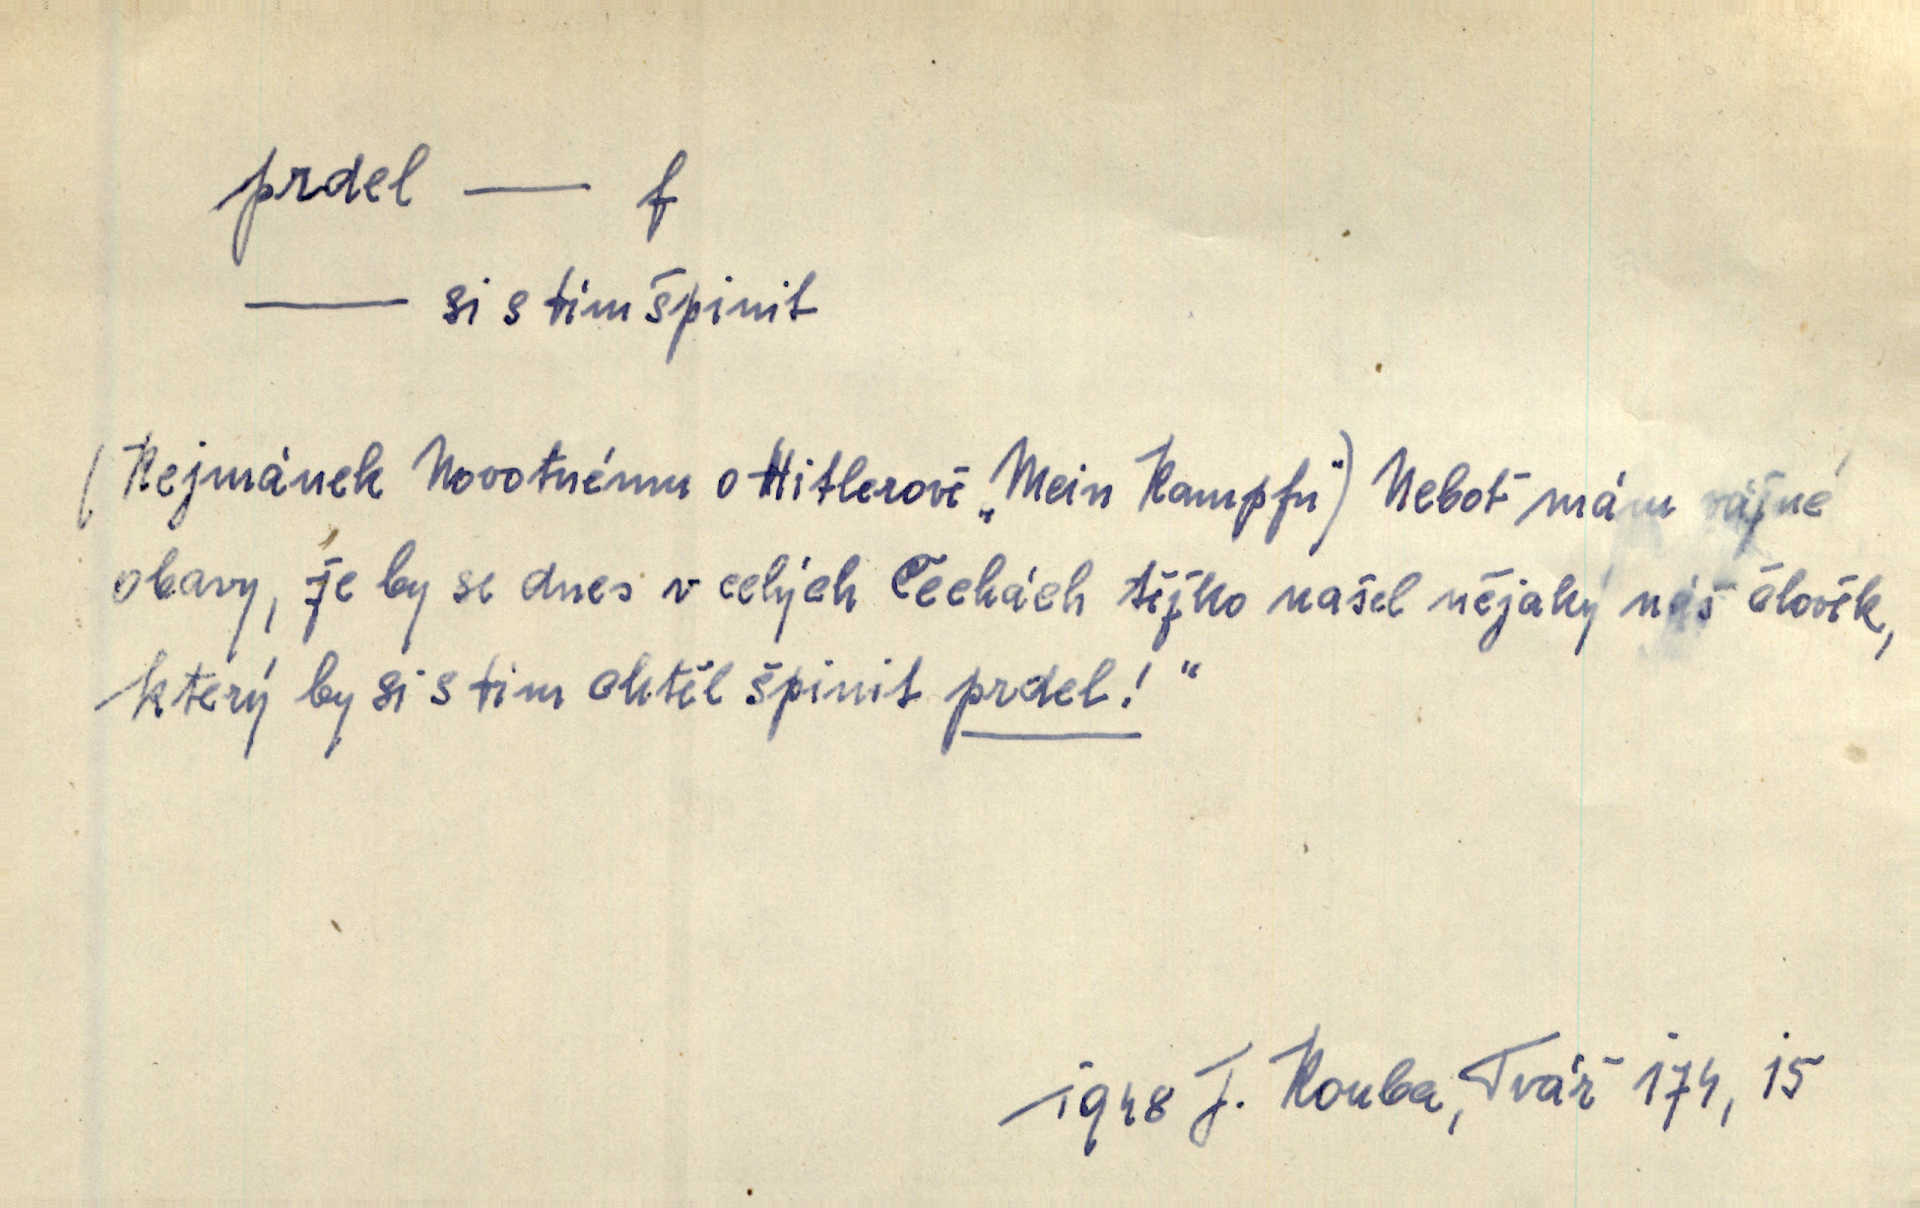 prdel — f
— si s tím špinit
(Kejmánek Novotnému o Hitlerově „Mein Kampfu") Neboť mám vážné
obavy, že by se dnes v celých Čechách těžko našel nějaký náš člověk,
který by si s tim chtěl špinit prdel!“
1948 J. Kouba, Tvář 174, 15